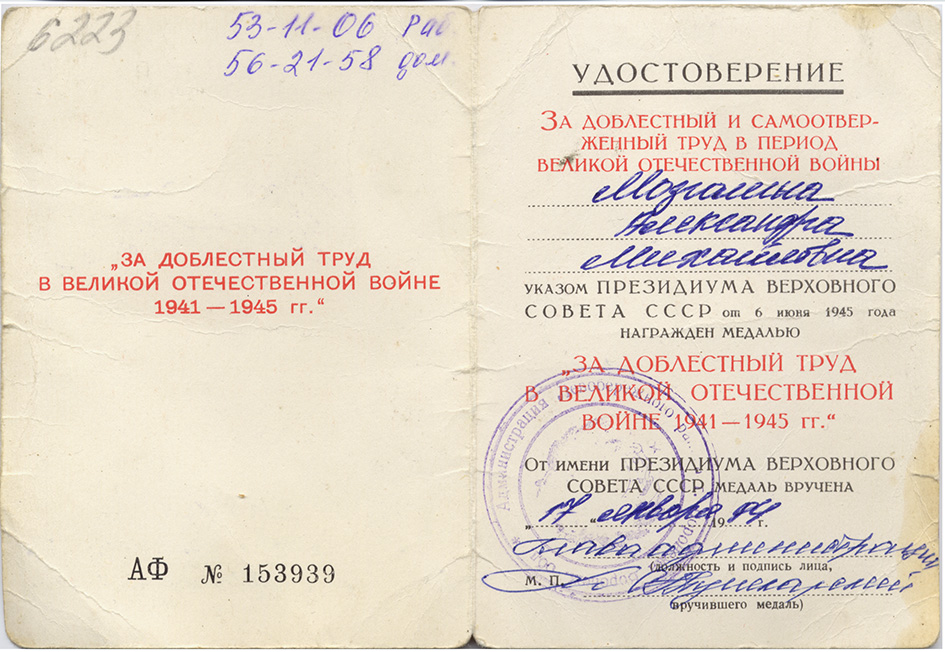 6223
53-11-06 Раб.
56-21-58 дом.
„ЗА ДОБЛЕСТНЫЙ ТРУД
В ВЕЛИКОЙ ОТЕЧЕСТВЕННОЙ ВОЙНЕ
1941 — 1945 гг.“
АФ № 153939
УДОСТОВЕРЕНИЕ
ЗА ДОБЛЕСТНЫЙ И САМООТВЕР-
ЖЕННЫЙ ТРУД В ПЕРИОД
ВЕЛИКОЙ ОТЕЧЕСТВЕННОЙ ВОЙНЫ
Мозгалина
Александра
Михайловна
УКАЗОМ ПРЕЗИДИУМА ВЕРХОВНОГО
СОВЕТА СССР от 6 июня 1945 года
НАГРАЖДЕН МЕДАЛЬЮ
„ЗА ДОБЛЕСТНЫЙ ТРУД
В ВЕЛИКОЙ ОТЕЧЕСТВЕННОЙ
ВОЙНЕ 1941 — 1945 гг.“
ОТ ИМЕНИ ПРЕЗИДИУМА ВЕРХОВНОГО
СОВЕТА СССР МЕДАЛЬ ВРУЧЕНА
„ 17 “ января 1994 г.
Глава администрации
(должность и подпись лица,
М. П.
вручившего медаль)
Администрация